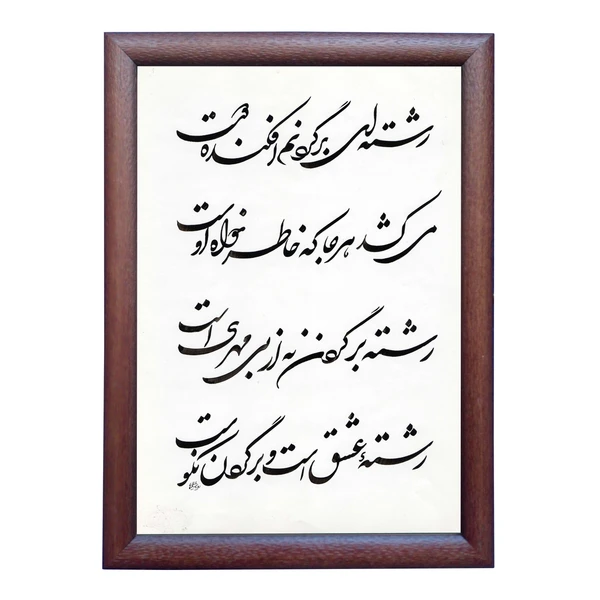 رشته ای بر گردنم افکنده دوست
می کشد هر جا که خاطر خواه اوست
رشته بر گردن نه از بی مهری است
رشتهٔ عشق است و بر گردن نکوست